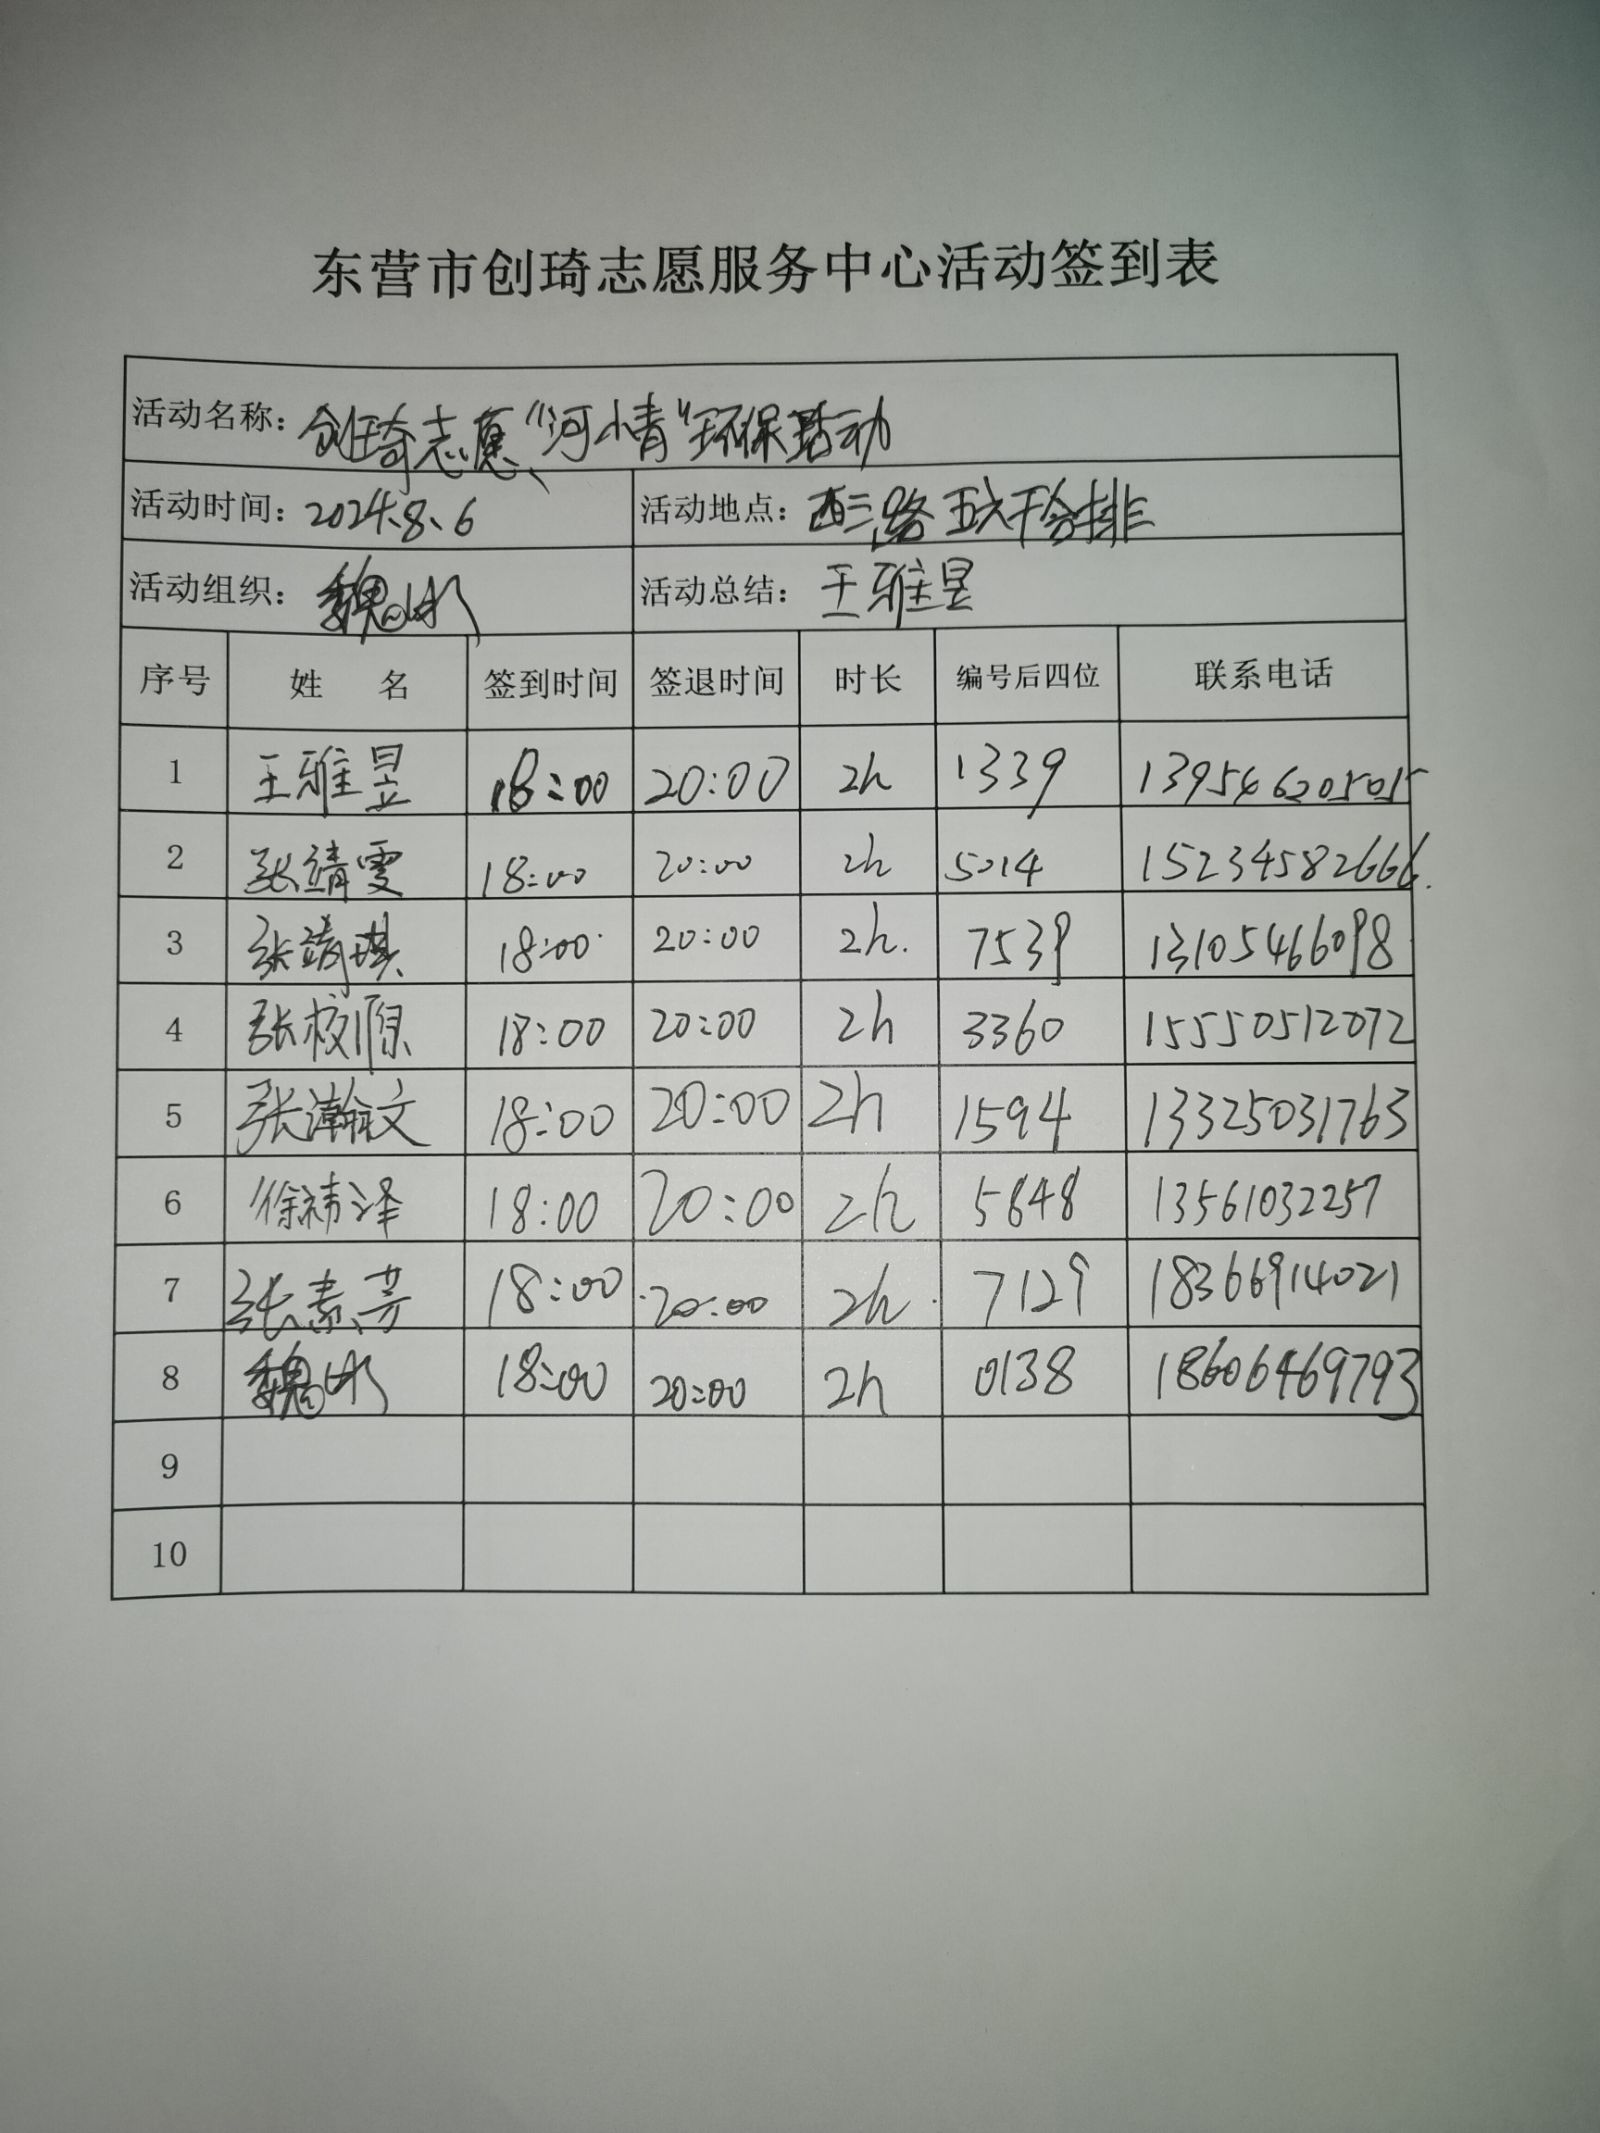 东营市创琦志愿服务中心活动签到表
活动名称：创琦志愿“河小青”环保活动
活动时间：2024.8.6 活动地点：西三路五六干合排
活动组织：魏冰 活动总结：王雅昱
序号 姓 名 签到时间 签退时间 时长 编号后四位 联系电话
1 王雅昱 18:00 20:00 2h 1339
2 张靖雯 18:00 20:00 2h 5014 15234582666.
3 张靖琪 18:00 20:00 2h. 7539 13105466098
4 18:00 20:00 2h 3360 15550512072
5 张瀚文 18:00 20:00 2h 1594 13325031763
6 徐祎泽 18:00 20:00 2h 5648 13561032257
7 张素芳 18:00 20:00 2h. 7129 18366914021
8 魏冰 18:00 20:00 2h 0138 18606469793
9
10